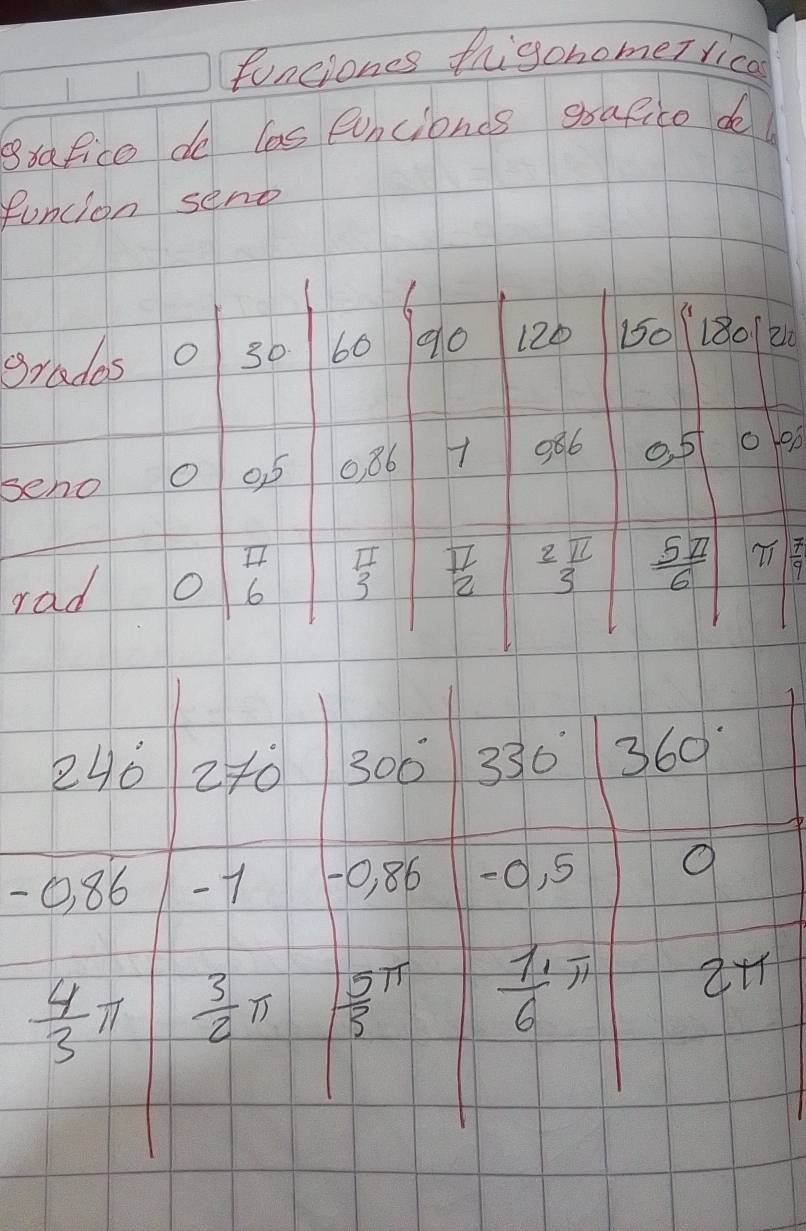 funciones trigonometricas
grafico de las funciones grafico de
funcion seno
grados 0 30 60 90 120 150 180 210
seno 0 0,5 0,86 1 0,86 0,5 0
rad 0 π/6 π/3 π/2 2π/3 5π/6 π
240° 270° 300° 330° 360°
-0,86 -1 -0,86 -0,5 0
4/3 π 3/2 π 5/3 π 11/6 π 2π